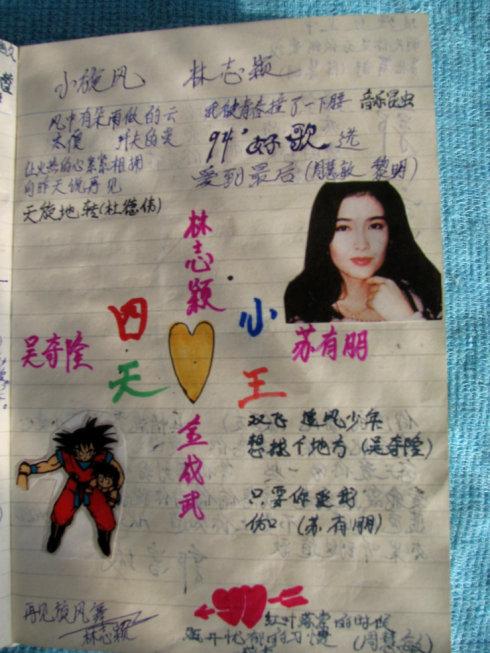 小旋风 林志颖
风中有朵雨做的云
太傻
我被青春撞了一下腰 音乐昆虫
94'好歌选
让火热的心紧紧相拥
向昨天说再见
爱到最后(周慧敏 黎明)
天旋地转(杜德伟)
林志颖
四 小
吴奇隆 苏有朋
天 王
金城武
双飞 追风少年
想找个地方(吴奇隆)
只要你爱我
伤口(苏有朋)
再见旋风舞
林志颖
红叶落索的时候
离开忧郁的习惯 (周慧敏)